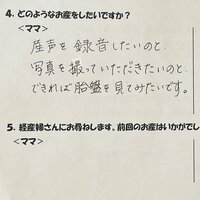 4. どのようなお産をしたいですか？
<ママ>
産声を録音したいのと、
写真を撮っていただきたいのと、
できれば胎盤を見てみたいです。
5. 経産婦さんにお尋ねします。前回のお産はいかがでし
<ママ>